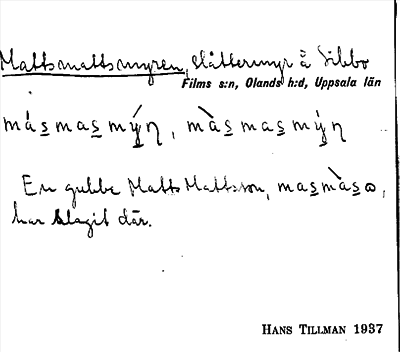 Mattsmattsmyren, slåttermyr å Sibbo
Films s:n, Olands h:d, Uppsala län
mása̱mas̱mýn̡, màs̱mas̱mýn̡
En gubbe Matts Mattsson, mas̱màs̱ɷ,
har slagit där.
HANS TILLMAN 1937